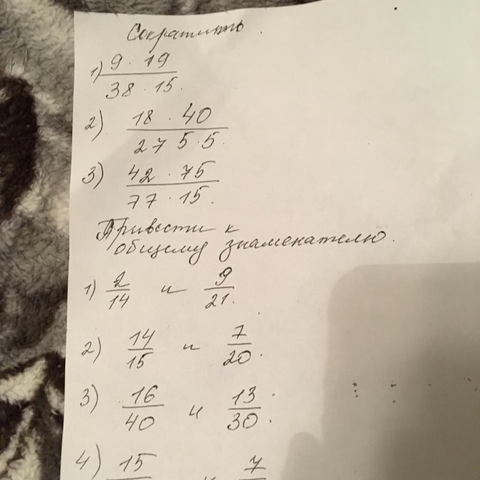 Сократить.
1) 9 · 19
38 · 15.
2) 18 · 40
27 5 · 5.
3) 42 · 75
77 · 15.
Привести к
общему знаменателю.
1) 2/14 и 9/21.
2) 14/15 и 7/20.
3) 16/40 и 13/30.
4) 15 и 7